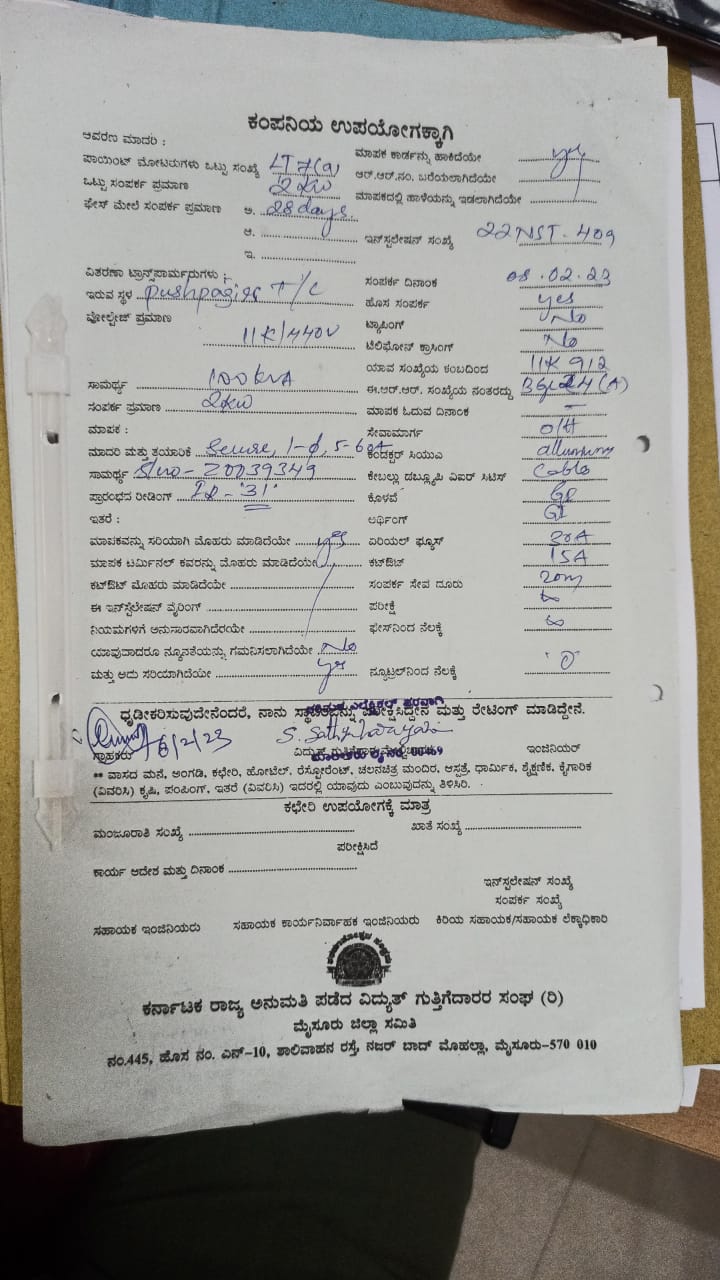 ಕಂಪನಿಯ ಉಪಯೋಗಕ್ಕಾಗಿ
ಆವರಣ ಮಾದರಿ :
ಮಾಪಕ ಕಾರ್ಡನ್ನು ಹಾಕಿದೆಯೇ yes
ಪಾಯಿಂಟ್ ಮೋಟರುಗಳು ಒಟ್ಟು ಸಂಖ್ಯೆ LT 7(a)
ಆರ್.ಆರ್.ನಂ. ಬರೆಯಲಾಗಿದೆಯೇ
ಒಟ್ಟು ಸಂಪರ್ಕ ಪ್ರಮಾಣ 2kw
ಮಾಪಕದಲ್ಲಿ ಹಾಳೆಯನ್ನು ಇಡಲಾಗಿದೆಯೇ
ಫೇಸ್ ಮೇಲೆ ಸಂಪರ್ಕ ಪ್ರಮಾಣ ಅ. 28 days
ಆ.
ಇನ್‌ಸ್ಟಲೇಷನ್ ಸಂಖ್ಯೆ 22NST-409
ಇ.
ವಿತರಣಾ ಟ್ರಾನ್ಸ್‌ಪಾರ್ಮರುಗಳು :-
ಸಂಪರ್ಕ ದಿನಾಂಕ 08.02.23
ಇರುವ ಸ್ಥಳ T/c
ಹೊಸ ಸಂಪರ್ಕ yes
ವೋಲ್ಟೇಜ್ ಪ್ರಮಾಣ 11K/440V
ಟ್ಯಾಪಿಂಗ್ No
ಟೆಲಿಫೋನ್ ಕ್ರಾಸಿಂಗ್ No
ಯಾವ ಸಂಖ್ಯೆಯ ಕಂಬದಿಂದ 11K 912
ಸಾಮರ್ಥ್ಯ 100kVA
ಈ.ಆರ್.ಆರ್. ಸಂಖ್ಯೆಯ ನಂತರದ್ದು
ಸಂಪರ್ಕ ಪ್ರಮಾಣ 2kw
ಮಾಪಕ ಓದುವ ದಿನಾಂಕ –
ಮಾಪಕ :
ಸೇವಾಮಾರ್ಗ O/H
ಮಾದರಿ ಮತ್ತು ತಯಾರಿಕೆ Secure, 1-φ, 5-60A
ಕಂಡಕ್ಟರ್ ಸಿಯುಎ
ಸಾಮರ್ಥ್ಯ S/no- 20039349
ಕೇಬಲ್ಲು ಡಬ್ಲ್ಯೂಪಿ ವಿಐರ್ ಸಿಟಿಸ್ Cable
ಪ್ರಾರಂಭದ ರೀಡಿಂಗ್ IR - '31'
ಕೊಳವೆ GI
ಇತರೆ :
ಅರ್ಥಿಂಗ್ GI
ಮಾಪಕವನ್ನು ಸರಿಯಾಗಿ ಮೊಹರು ಮಾಡಿದೆಯೇ yes
ಏರಿಯಲ್ ಫ್ಯೂಸ್ 30A
ಮಾಪಕ ಟರ್ಮಿನಲ್ ಕವರನ್ನು ಮೊಹರು ಮಾಡಿದೆಯೇ
ಕಟ್‌ಔಟ್ 15A
ಕಟ್‌ಔಟ್ ಮೊಹರು ಮಾಡಿದೆಯೇ
ಸಂಪರ್ಕ ಸೇವ ದೂರು 20m
ಈ ಇನ್‌ಸ್ಟೆಲೇಷನ್ ವೈರಿಂಗ್
ಪರೀಕ್ಷೆ ∞
ನಿಯಮಗಳಿಗೆ ಅನುಸಾರವಾಗಿದೆರಯೇ
ಫೇಸ್‌ನಿಂದ ನೆಲಕ್ಕೆ ∞
ಯಾವುದಾದರೂ ನ್ಯೂನತೆಯನ್ನು ಗಮನಿಸಲಾಗಿದೆಯೇ No
ಮತ್ತು ಅದು ಸರಿಯಾಗಿದೆಯೇ yes
ನ್ಯೂಟ್ರಲ್‌ನಿಂದ ನೆಲಕ್ಕೆ '0'
ಧೃಡೀಕರಿಸುವುದೇನೆಂದರೆ, ನಾನು ಸ್ಥಾವರವನ್ನು ಪರೀಕ್ಷಿಸಿದ್ದೇನೆ ಮತ್ತು ರೇಟಿಂಗ್ ಮಾಡಿದ್ದೇನೆ.
8/2/23
ಗ್ರಾಹಕರು
ವಿದ್ಯುತ್ ಗುತ್ತಿಗೆದಾರ
ಇಂಜಿನಿಯರ್
** ವಾಸದ ಮನೆ, ಅಂಗಡಿ, ಕಛೇರಿ, ಹೋಟೆಲ್, ರೆಸ್ಟೋರೆಂಟ್, ಚಲನಚಿತ್ರ ಮಂದಿರ, ಆಸ್ಪತ್ರೆ, ಧಾರ್ಮಿಕ, ಶೈಕ್ಷಣಿಕ, ಕೈಗಾರಿಕ
(ವಿವರಿಸಿ) ಕೃಷಿ, ಪಂಪಿಂಗ್, ಇತರೆ (ವಿವರಿಸಿ) ಇದರಲ್ಲಿ ಯಾವುದು ಎಂಬುವುದನ್ನು ತಿಳಿಸಿರಿ.
ಕಛೇರಿ ಉಪಯೋಗಕ್ಕೆ ಮಾತ್ರ
ಮಂಜೂರಾತಿ ಸಂಖ್ಯೆ
ಖಾತೆ ಸಂಖ್ಯೆ
ಪರೀಕ್ಷಿಸಿದೆ
ಕಾರ್ಯ ಆದೇಶ ಮತ್ತು ದಿನಾಂಕ
ಇನ್‌ಸ್ಟಲೇಷನ್ ಸಂಖ್ಯೆ
ಸಂಪರ್ಕ ಸಂಖ್ಯೆ
ಸಹಾಯಕ ಇಂಜಿನಿಯರು
ಸಹಾಯಕ ಕಾರ್ಯನಿರ್ವಾಹಕ ಇಂಜಿನಿಯರು
ಕಿರಿಯ ಸಹಾಯಕ/ಸಹಾಯಕ ಲೆಕ್ಕಾಧಿಕಾರಿ
ಕರ್ನಾಟಕ ರಾಜ್ಯ ಅನುಮತಿ ಪಡೆದ ವಿದ್ಯುತ್ ಗುತ್ತಿಗೆದಾರರ ಸಂಘ (ರಿ)
ಮೈಸೂರು ಜಿಲ್ಲಾ ಸಮಿತಿ
ನಂ.445, ಹೊಸ ನಂ. ಎನ್-10, ಶಾಲಿವಾಹನ ರಸ್ತೆ, ನಜರ್ ಬಾದ್ ಮೊಹಲ್ಲಾ, ಮೈಸೂರು-570 010